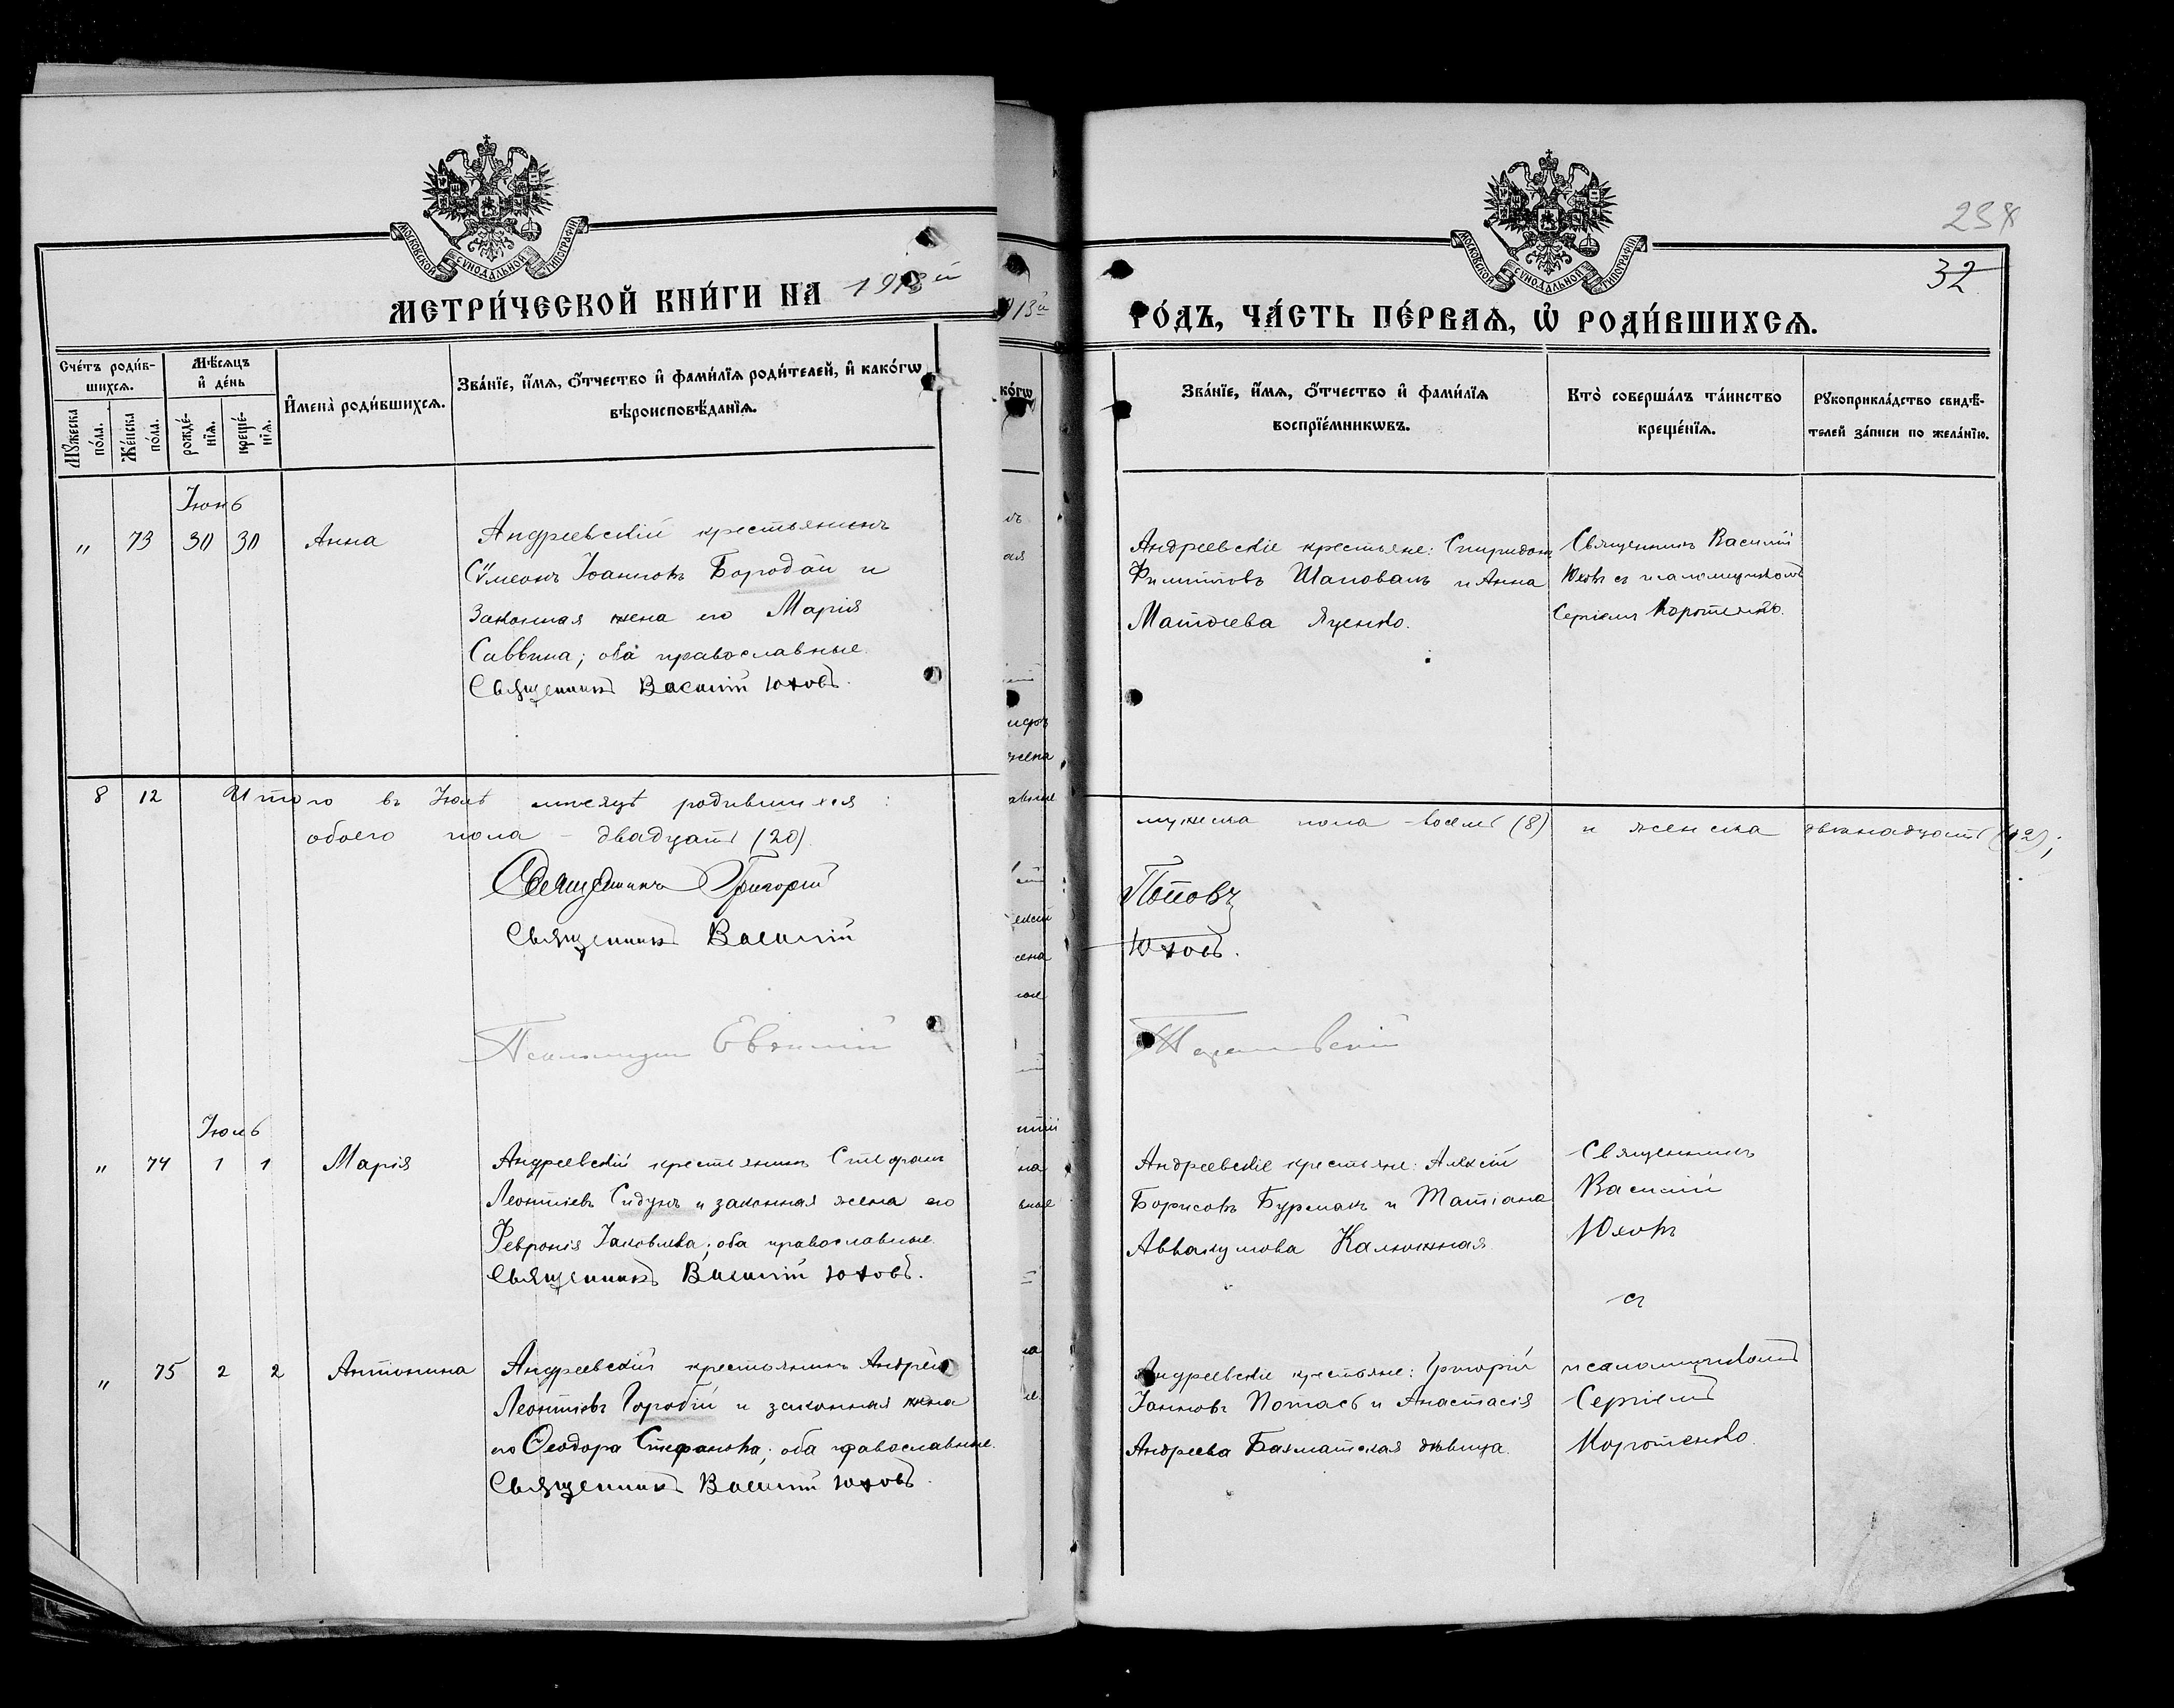 МОСКОВСКОЙ СУНОДАЛЬНОЙ ТИПОГРАФІИ
МЕТРИ́ЧЕСКОЙ КНИ́ГИ НА 1913й
Сче́тъ роди́в-
шихсѧ.
Мѣ́сѧцъ
и҆ де́нь
Му́жеска
по́ла.
Же́нска
по́ла.
рожде́-
нїѧ.
креще́-
нїѧ.
И҆мена̀ роди́вшихсѧ.
Зва́нїе, и҆́мѧ, ѻ҆́тчество и҆ фами́лїѧ роди́телей, и҆ како́гѡ
вѣроисповѣ́данїѧ.
Іюнь
" 73 30 30 Анна
Андреевскій крестьянинъ
Сѵмеонъ Іоанновъ Бородай и
законная жена его Марія
Саввина; оба православные.
Священникъ Василій Юховъ.
8 12 Итого въ Іюнѣ мѣсяцѣ родившихся:
обоего пола – двадцать (20).
Священникъ Григорій
Священникъ Василій
Псаломщик Евѳимій
Іюль
" 74 1 1 Марія
Андреевскій крестьянинъ Стефанъ
Леонтіевъ Сидунъ и законная жена его
Февронія Іаковлева; оба православные.
Священникъ Василій Юховъ.
" 75 2 2 Антонина
Андреевскій крестьянинъ Андрей
Леонтіевъ Горобій и законная жена
его Ѳеодора Стефанова; оба православные.
Священникъ Василій Юховъ.
МОСКОВСКОЙ СУНОДАЛЬНОЙ ТИПОГРАФІИ
238
32
ГО́ДЪ, ЧА́СТЬ ПЕ́РВАѦ, Ѽ РОДИ́ВШИХСѦ.
Зва́нїе, и҆́мѧ, ѻ҆́тчество и҆ фами́лїѧ
воспрїе́мникѡвъ.
Кто̀ соверша́лъ та́инство
креще́нїѧ.
Рꙋкоприкла́дство свидѣ́-
телей за́писи по жела́нїю.
Андреевскіе крестьяне: Спиридонъ
Филипповъ Шаповалъ и Анна
Матѳіева Яценко.
Священникъ Василій
Юховъ съ псаломщикомъ
Сергіемъ Коротенко.
мужеска пола – восемь (8) и женска двѣнадцать (12);
Поповъ
Юховъ.
Андреевскіе крестьяне: Алексій
Борисовъ Бурмакъ и Татіана
Аввакумова Калюжная
Священникъ
Василій
Юховъ
съ
Андреевскіе крестьяне: Григорій
Іанновъ Потась и Анастасія
Андреева Бахматская дѣвица.
псаломщикомъ
Сергіемъ
Коротенко.